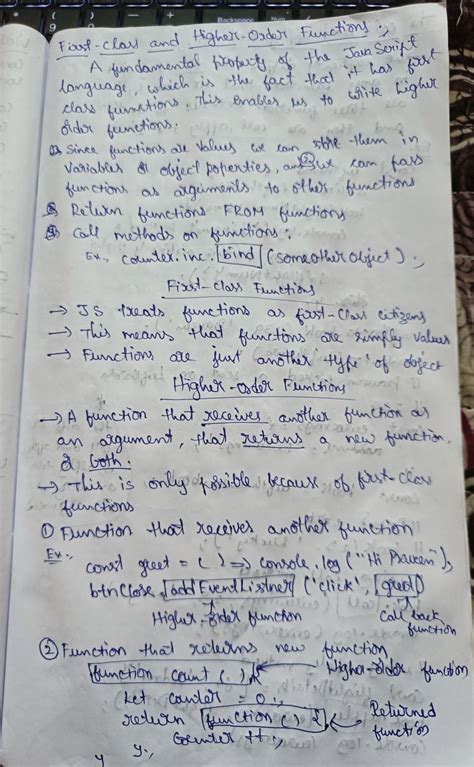 First-class and Higher-Order Functions:,
A fundamental property of the JavaScript
language, which is the fact that it has first
class functions. This enables us to write higher
order functions.
① Since functions are values we can store them in
variables or object poperties, and ② we can pass
functions as arguments to other functions
③ Return functions FROM functions
④ Call methods on functions:
Ex., counter.inc.bind(someotherobject);
First-class Functions
→ JS treats functions as first-class citizens
→ This means that functions are simply values
→ Functions are just another "type" of object
Higher-order Functions
→ A function that receives another function as
an argument, that returns a new function,
or both.
→ This is only possible because of first-class
functions
① Function that receives another function
Ex:, const greet = ( ) => console.log("Hi Praveen");
btnClose.addEventListner('click', greet)
Higher-order function
Call back
function
② Function that returns new function
function count ( ) {
Higher-order function
Let counter = 0;
return function ( ) {
Returned
function
Counter ++;
};
}